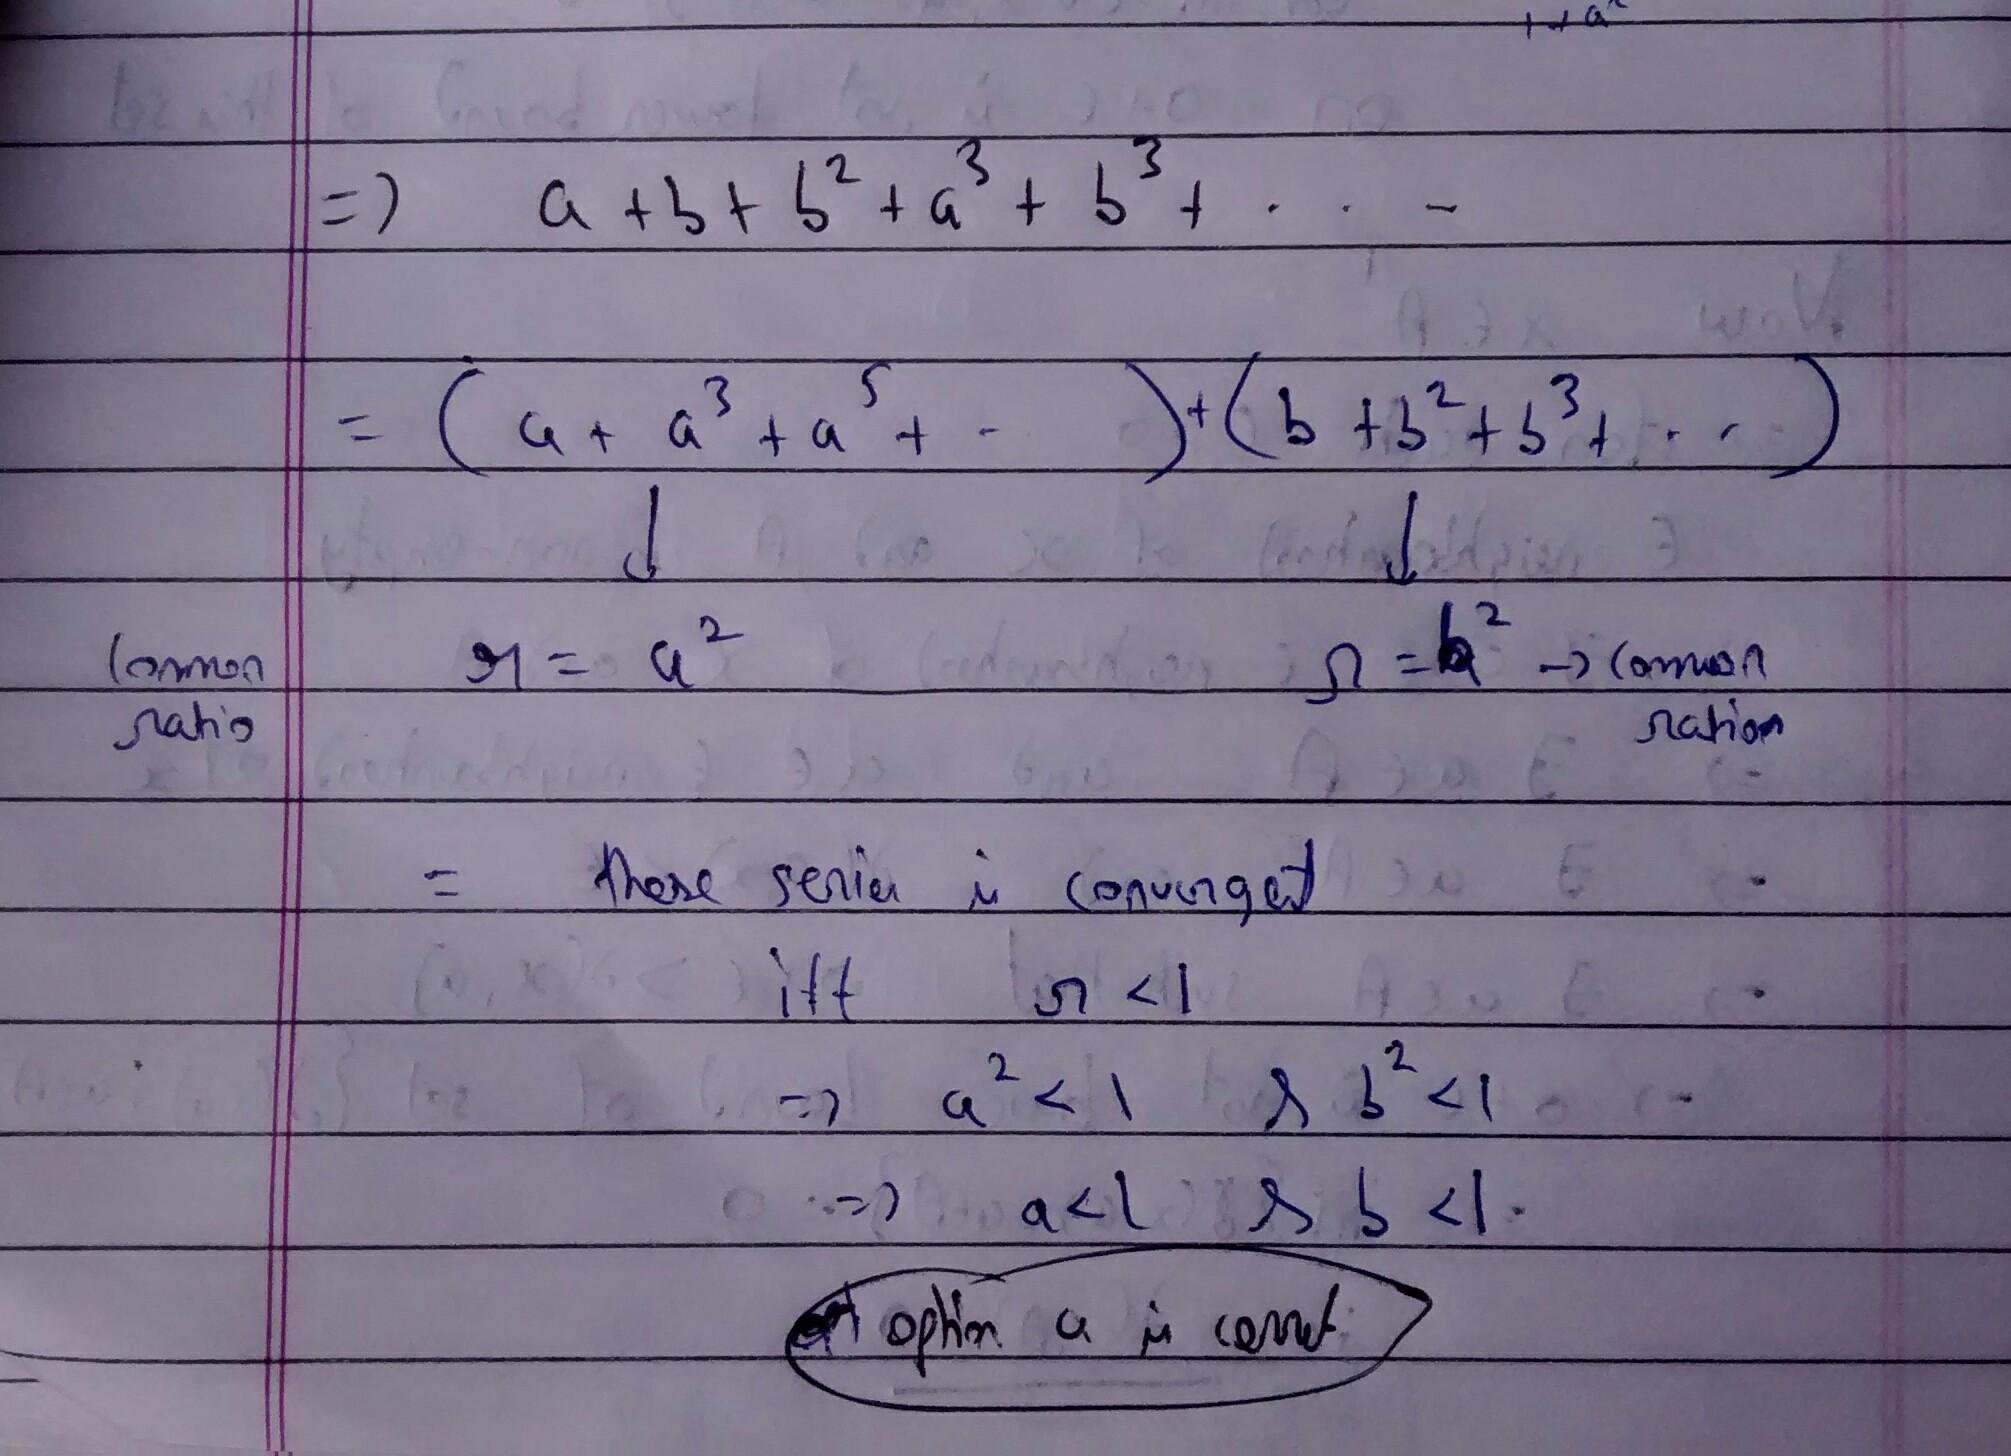 1+a²
=> a + b + b² + a³ + b³ + . . . -
= (a + a³ + a⁵ + - ) + (b + b² + b³ + . . .)
↓ ↓
common ratio r = a² r = b² → common ration
= these series is convergent
iff r < 1
=> a² < 1 & b² < 1
=> a < 1 & b < 1.
option a is correct.